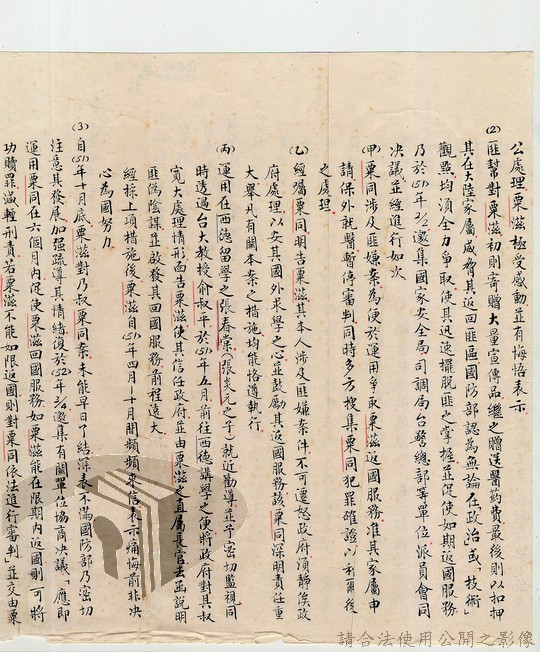 公處理粟滋極受感動並有悔悟表示
(2)匪幫對粟滋初則寄贈大量宣傳品繼之贈送醫藥費最後則以扣押
其在大陸家屬威脅其返回匪區國防部認為無論在「政治」或、「技術」
觀點均須全力爭取使其迅速擺脫匪之掌握並促使如期返國服務
乃於51年2/2邀集國家安全局司調局台警總部等單位派員會同
決議並經進行如次
(甲)粟同涉及匪嫌案為便於運用爭取粟滋返國服務准其家屬申
請保外就醫暫停審判同時多方搜集粟同犯罪確證以利爾後
之處理
(乙)經囑粟同明告粟滋其本人涉及匪嫌案件不可遷怒政府須靜俟政
府處理以安其國外求學之心並鼓勵其返國服務該粟同深明責任重
大舉凡有關本案之措施均能恪遵執行
(丙)運用在西德留學之張春棠(張炎元之子)就近勸導並予密切監視同
時透過台大教授俞叔平於51年五月前往西德講學之便將政府對其叔
寬大處理情形面告粟滋使其信任政府並由粟滋之直屬長官去函說明
匪偽陰謀並啟發其回國服務前程遠大
經採上項措施後粟滋自51年四月—十月間頻頻來信表示痛悔前非決
心為國努力
(3)自51年十月底粟滋對乃叔粟同案未能早日了結深表不滿國防部乃密切
注意其發展加強疏導其情緒復於52年3/4邀集有關單位協商決議「應即
運用粟同在六個月內促使粟滋回國服務如粟滋能在限期內返國則可將
功贖罪減輕刑責若粟滋不能如限返國則對粟同依法進行審判」並交由粟
請合法使用公開之影像